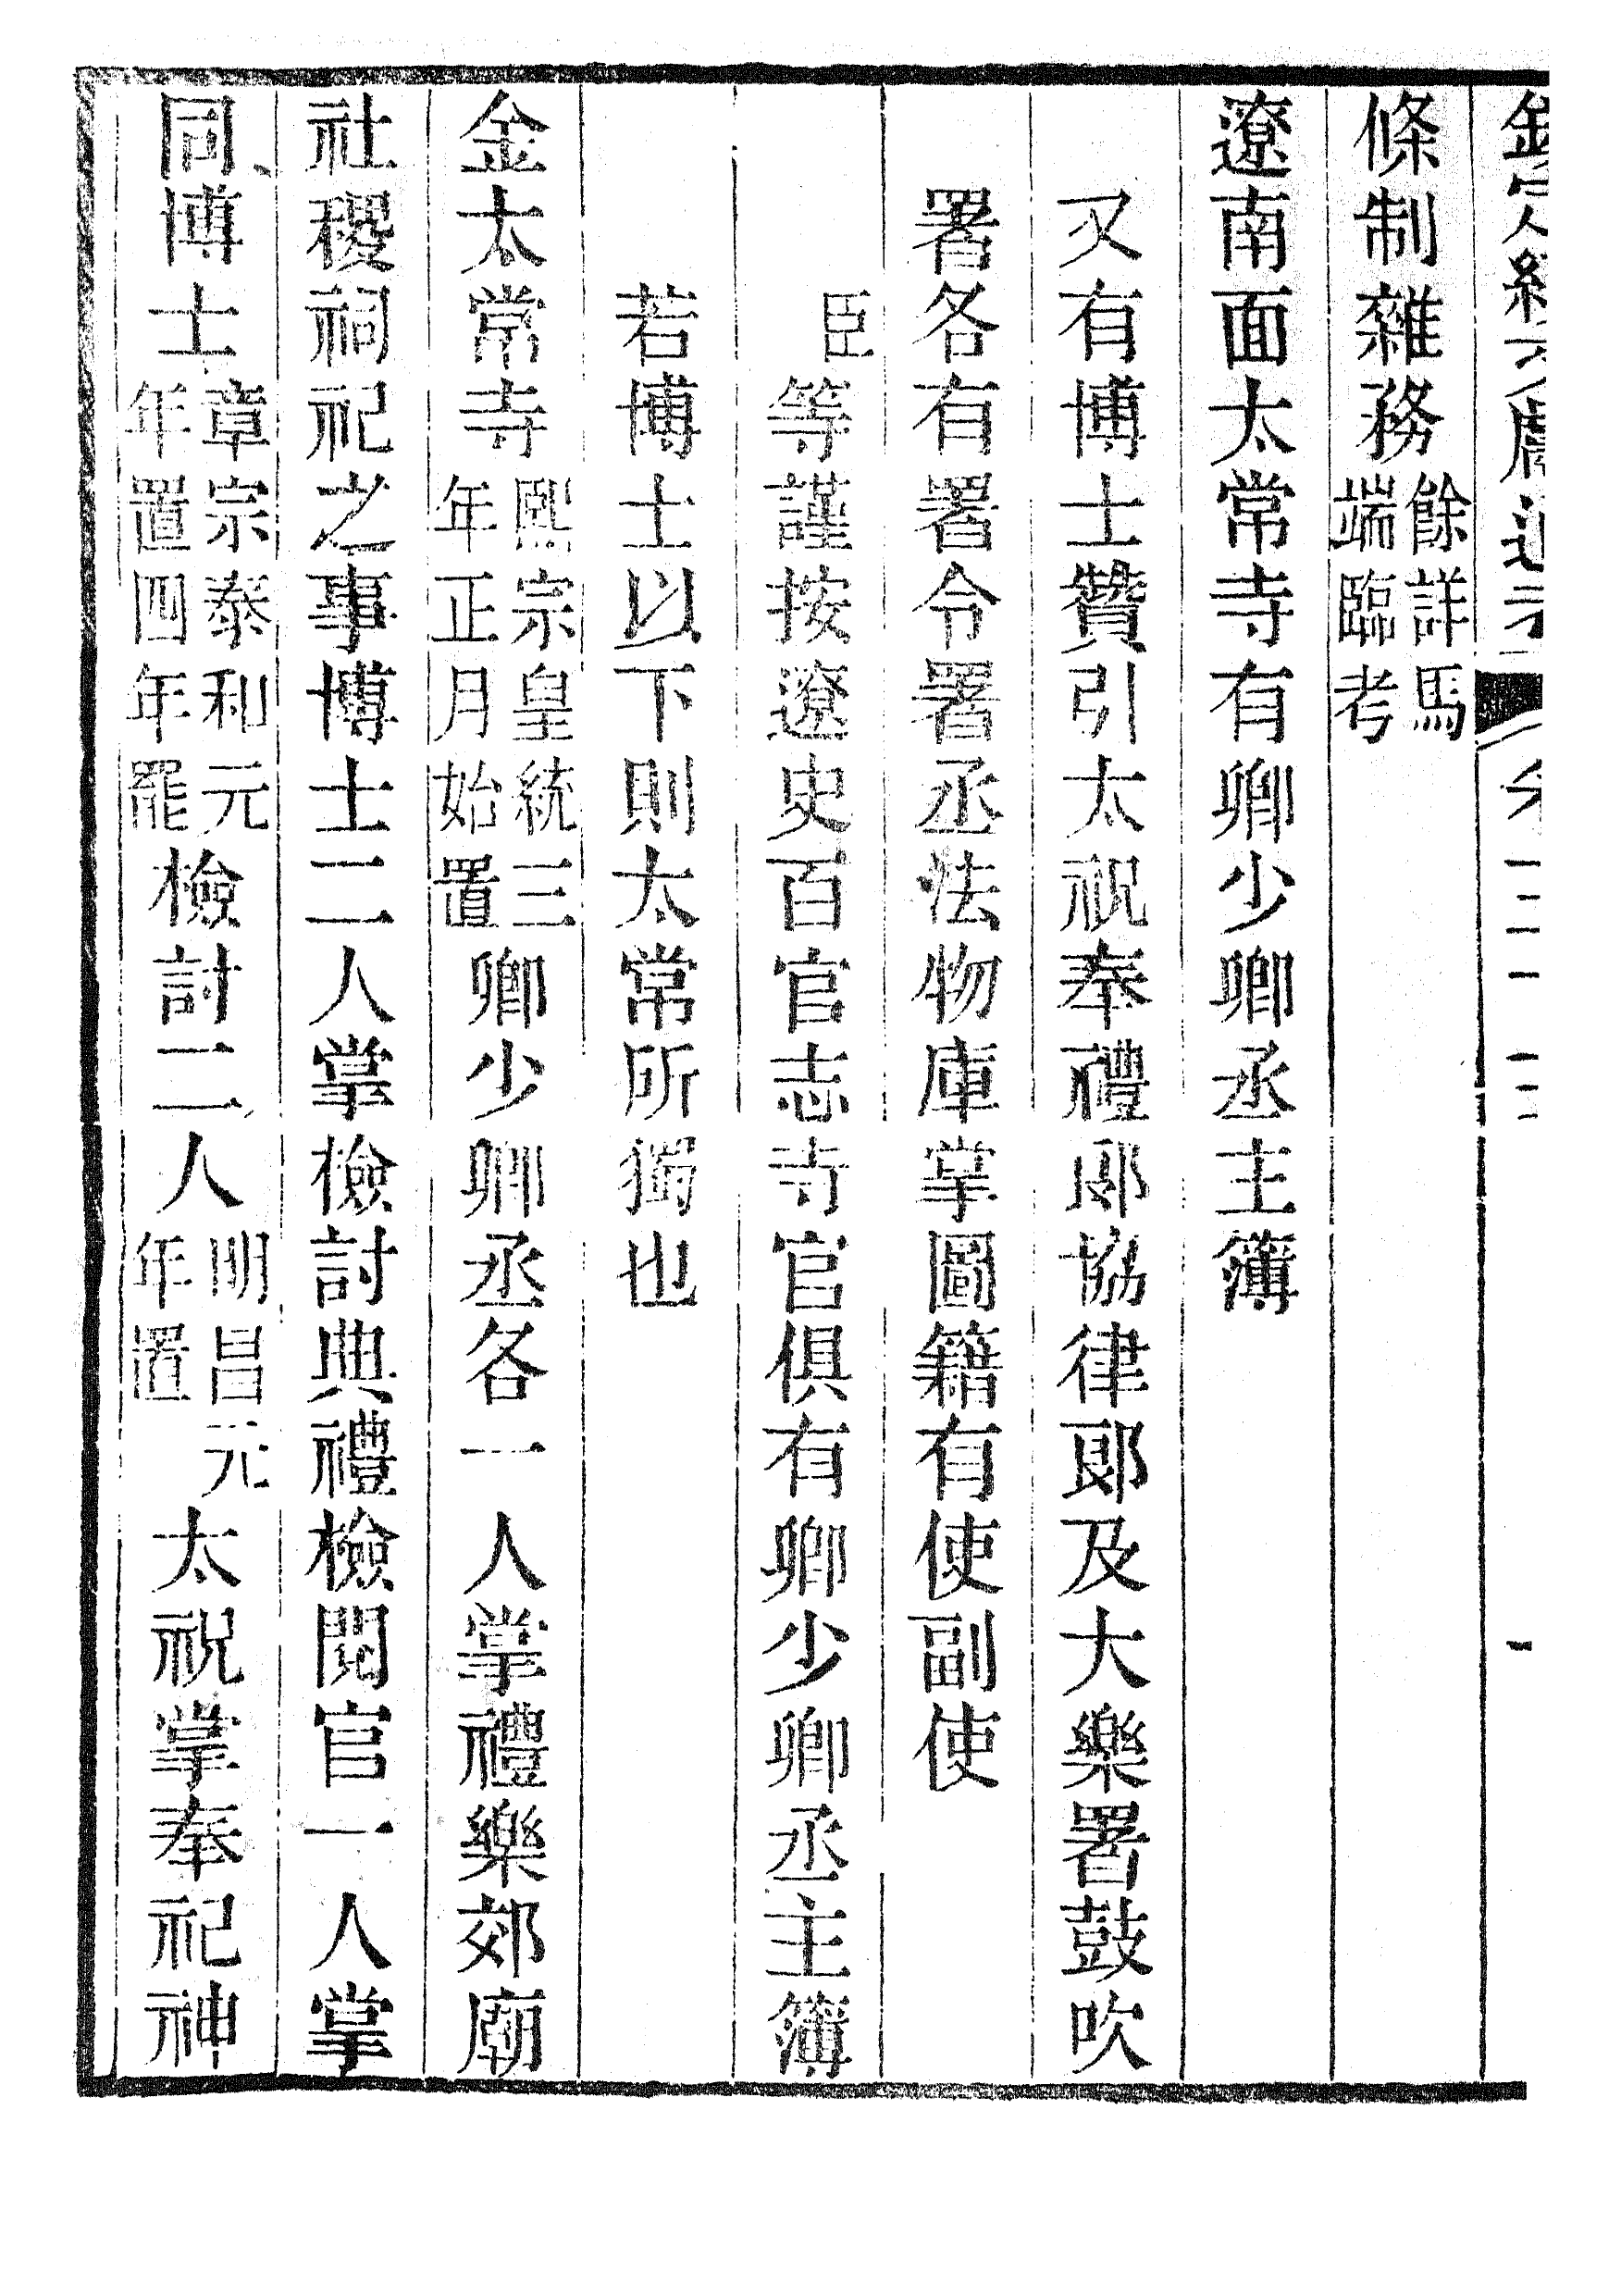 條制雜務餘詳馬端臨考
遼南面太常寺有卿少卿丞主簿
又有博士贊引太祝奉禮郎協律郎及大樂署鼓吹
署各有署令署丞法物庫掌圖籍有使副使
臣等謹按遼史百官志寺官俱有卿少卿丞主簿
若博士以下則太常所獨也
金太常寺熙宗皇統三年正月始置卿少卿丞各一人掌禮樂郊廟
社稷祠祀之事博士二人掌檢討典禮檢閱官一人掌
同博士章宗泰和元年置四年罷檢討二人明昌元年置太祝掌奉祀神